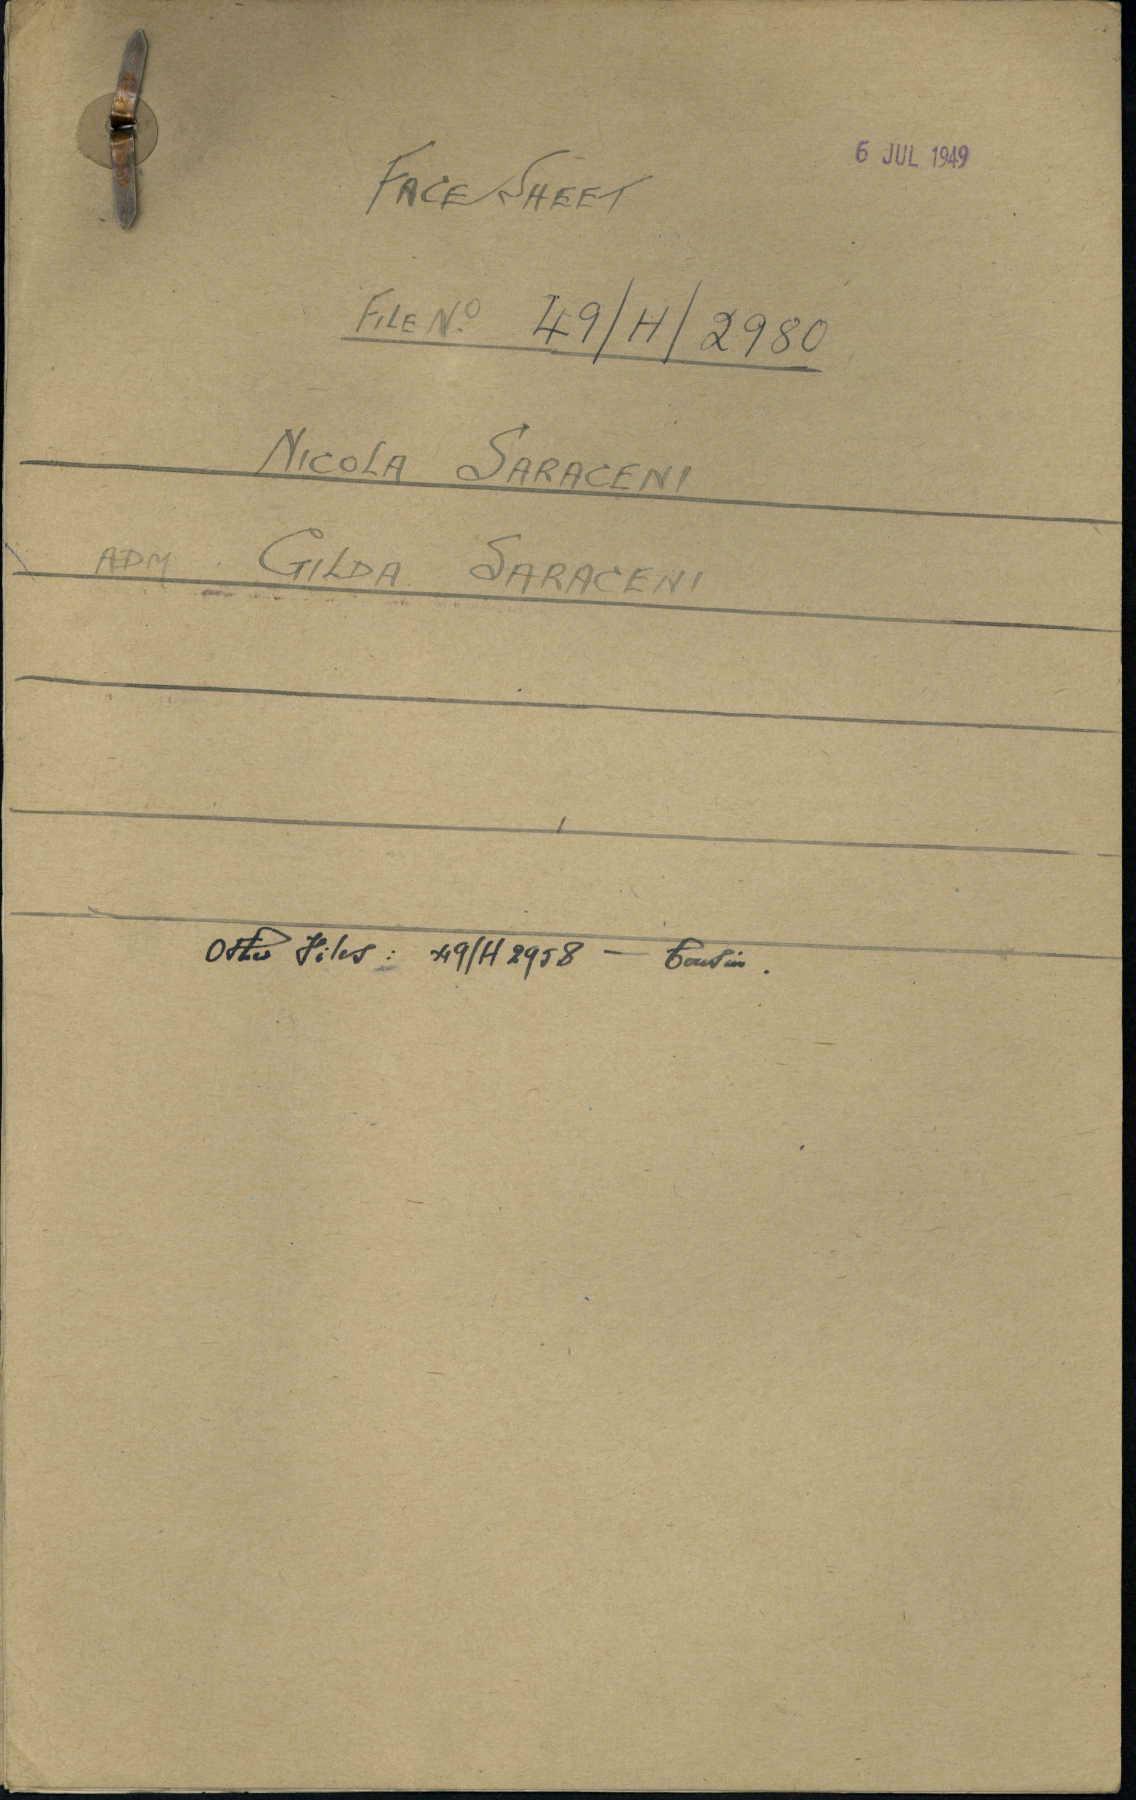 6 JUL 1949
FACE SHEET
FILE No. 49/H/2980
NICOLA SARACENI
ADM. GILDA SARACENI
Other Files: 49/H 2958 — Cousin.